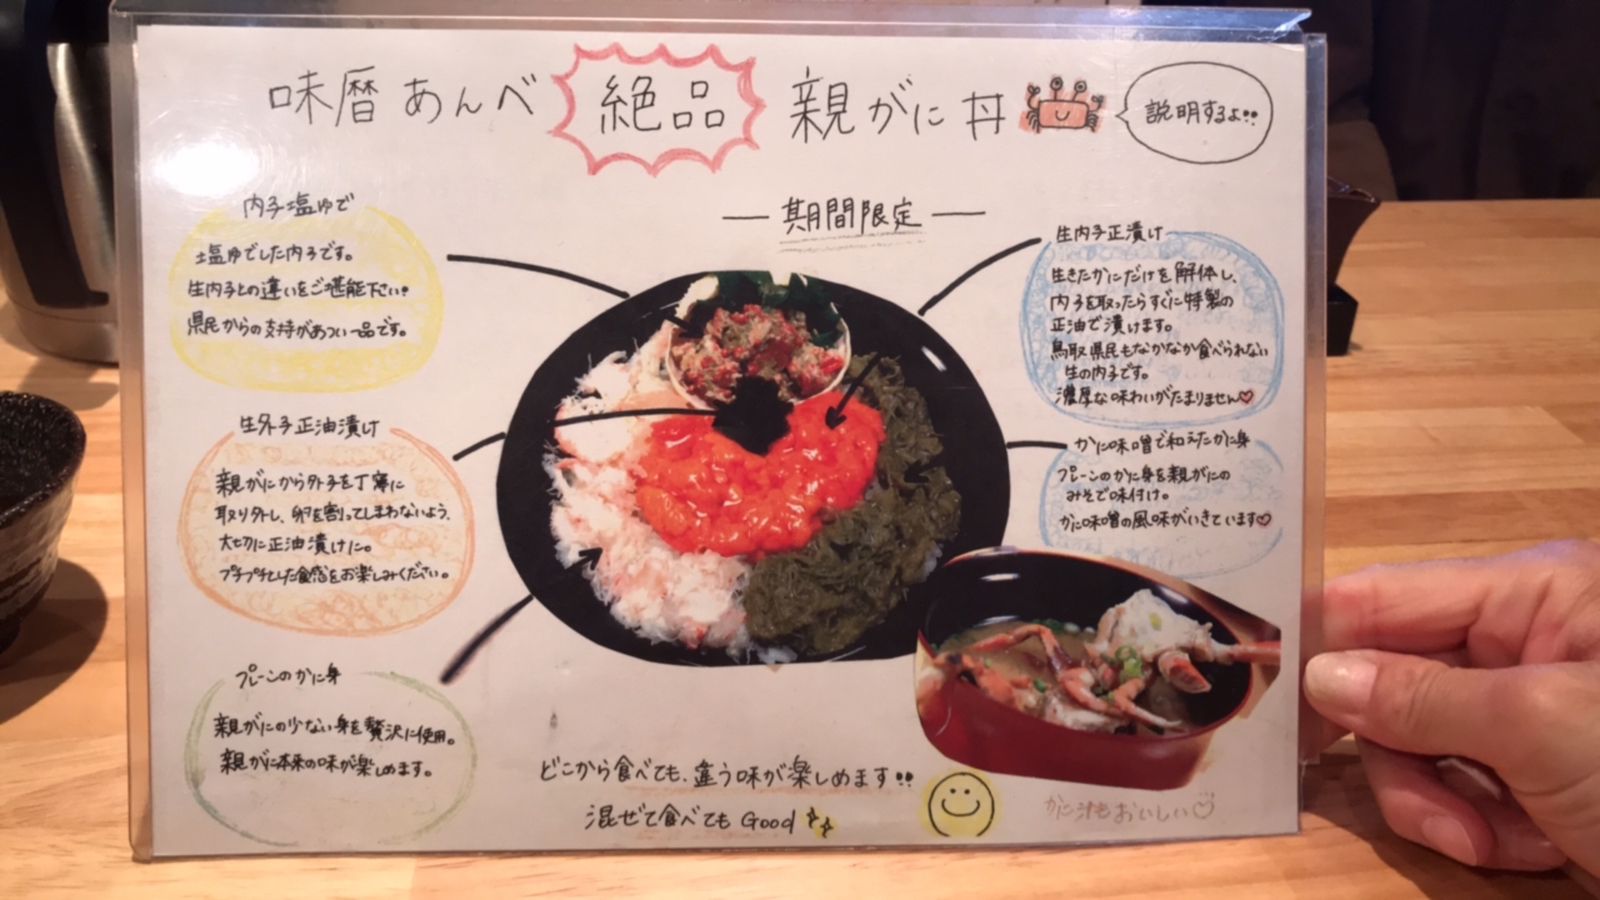 味暦あんべ 絶品 親がに丼 説明するよ!!
期間限定
内子塩ゆで
塩ゆでした内子です。
生内子との違いをご堪能下さい!
県民からの支持があつい一品です。
生外子正油漬け
親がにから外子を丁寧に
取り外し、卵を割ってしまわないよう、
大切に正油漬けに。
プチプチとした食感をお楽しみください。
プレーンのかに身
親がにの少ない身を贅沢に使用。
親がに本来の味が楽しめます。
生内子正漬け
生きたかにだけを解体し、
内子を取ったらすぐに特製の
正油で漬けます。
鳥取県民もなかなか食べられない
生の内子です。
濃厚な味わいがたまりません♡
かに味噌で和えたかに身
プレーンのかに身を親がにの
みそで味付け。
かに味噌の風味がいきています♡
どこから食べても、違う味が楽しめます!!
混ぜて食べてもGood
かに汁もおいしい♡